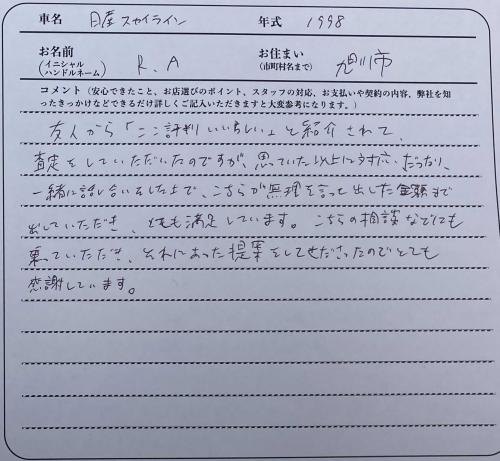 車名 日産スカイライン 年式 1998
お名前 (イニシャル ハンドルネーム) R.A お住まい (市町村名まで) 旭川市
コメント(安心できたこと、お店選びのポイント、スタッフの対応、お支払いや契約の内容、弊社を知
ったきっかけなどできるだけ詳しくご記入いただきますと大変参考になります。)
友人から「ここ評判いいらしい」と紹介されて、
査定をしていただいたのですが、思っていた以上に対応だったり、
一緒に話し合いもした上で、こちらが無理を言って出した金額まで
出していただき、とても満足しています。こちらの相談などにも
乗っていただき、それにあった提案をしてくださったのでとても
感謝しています。